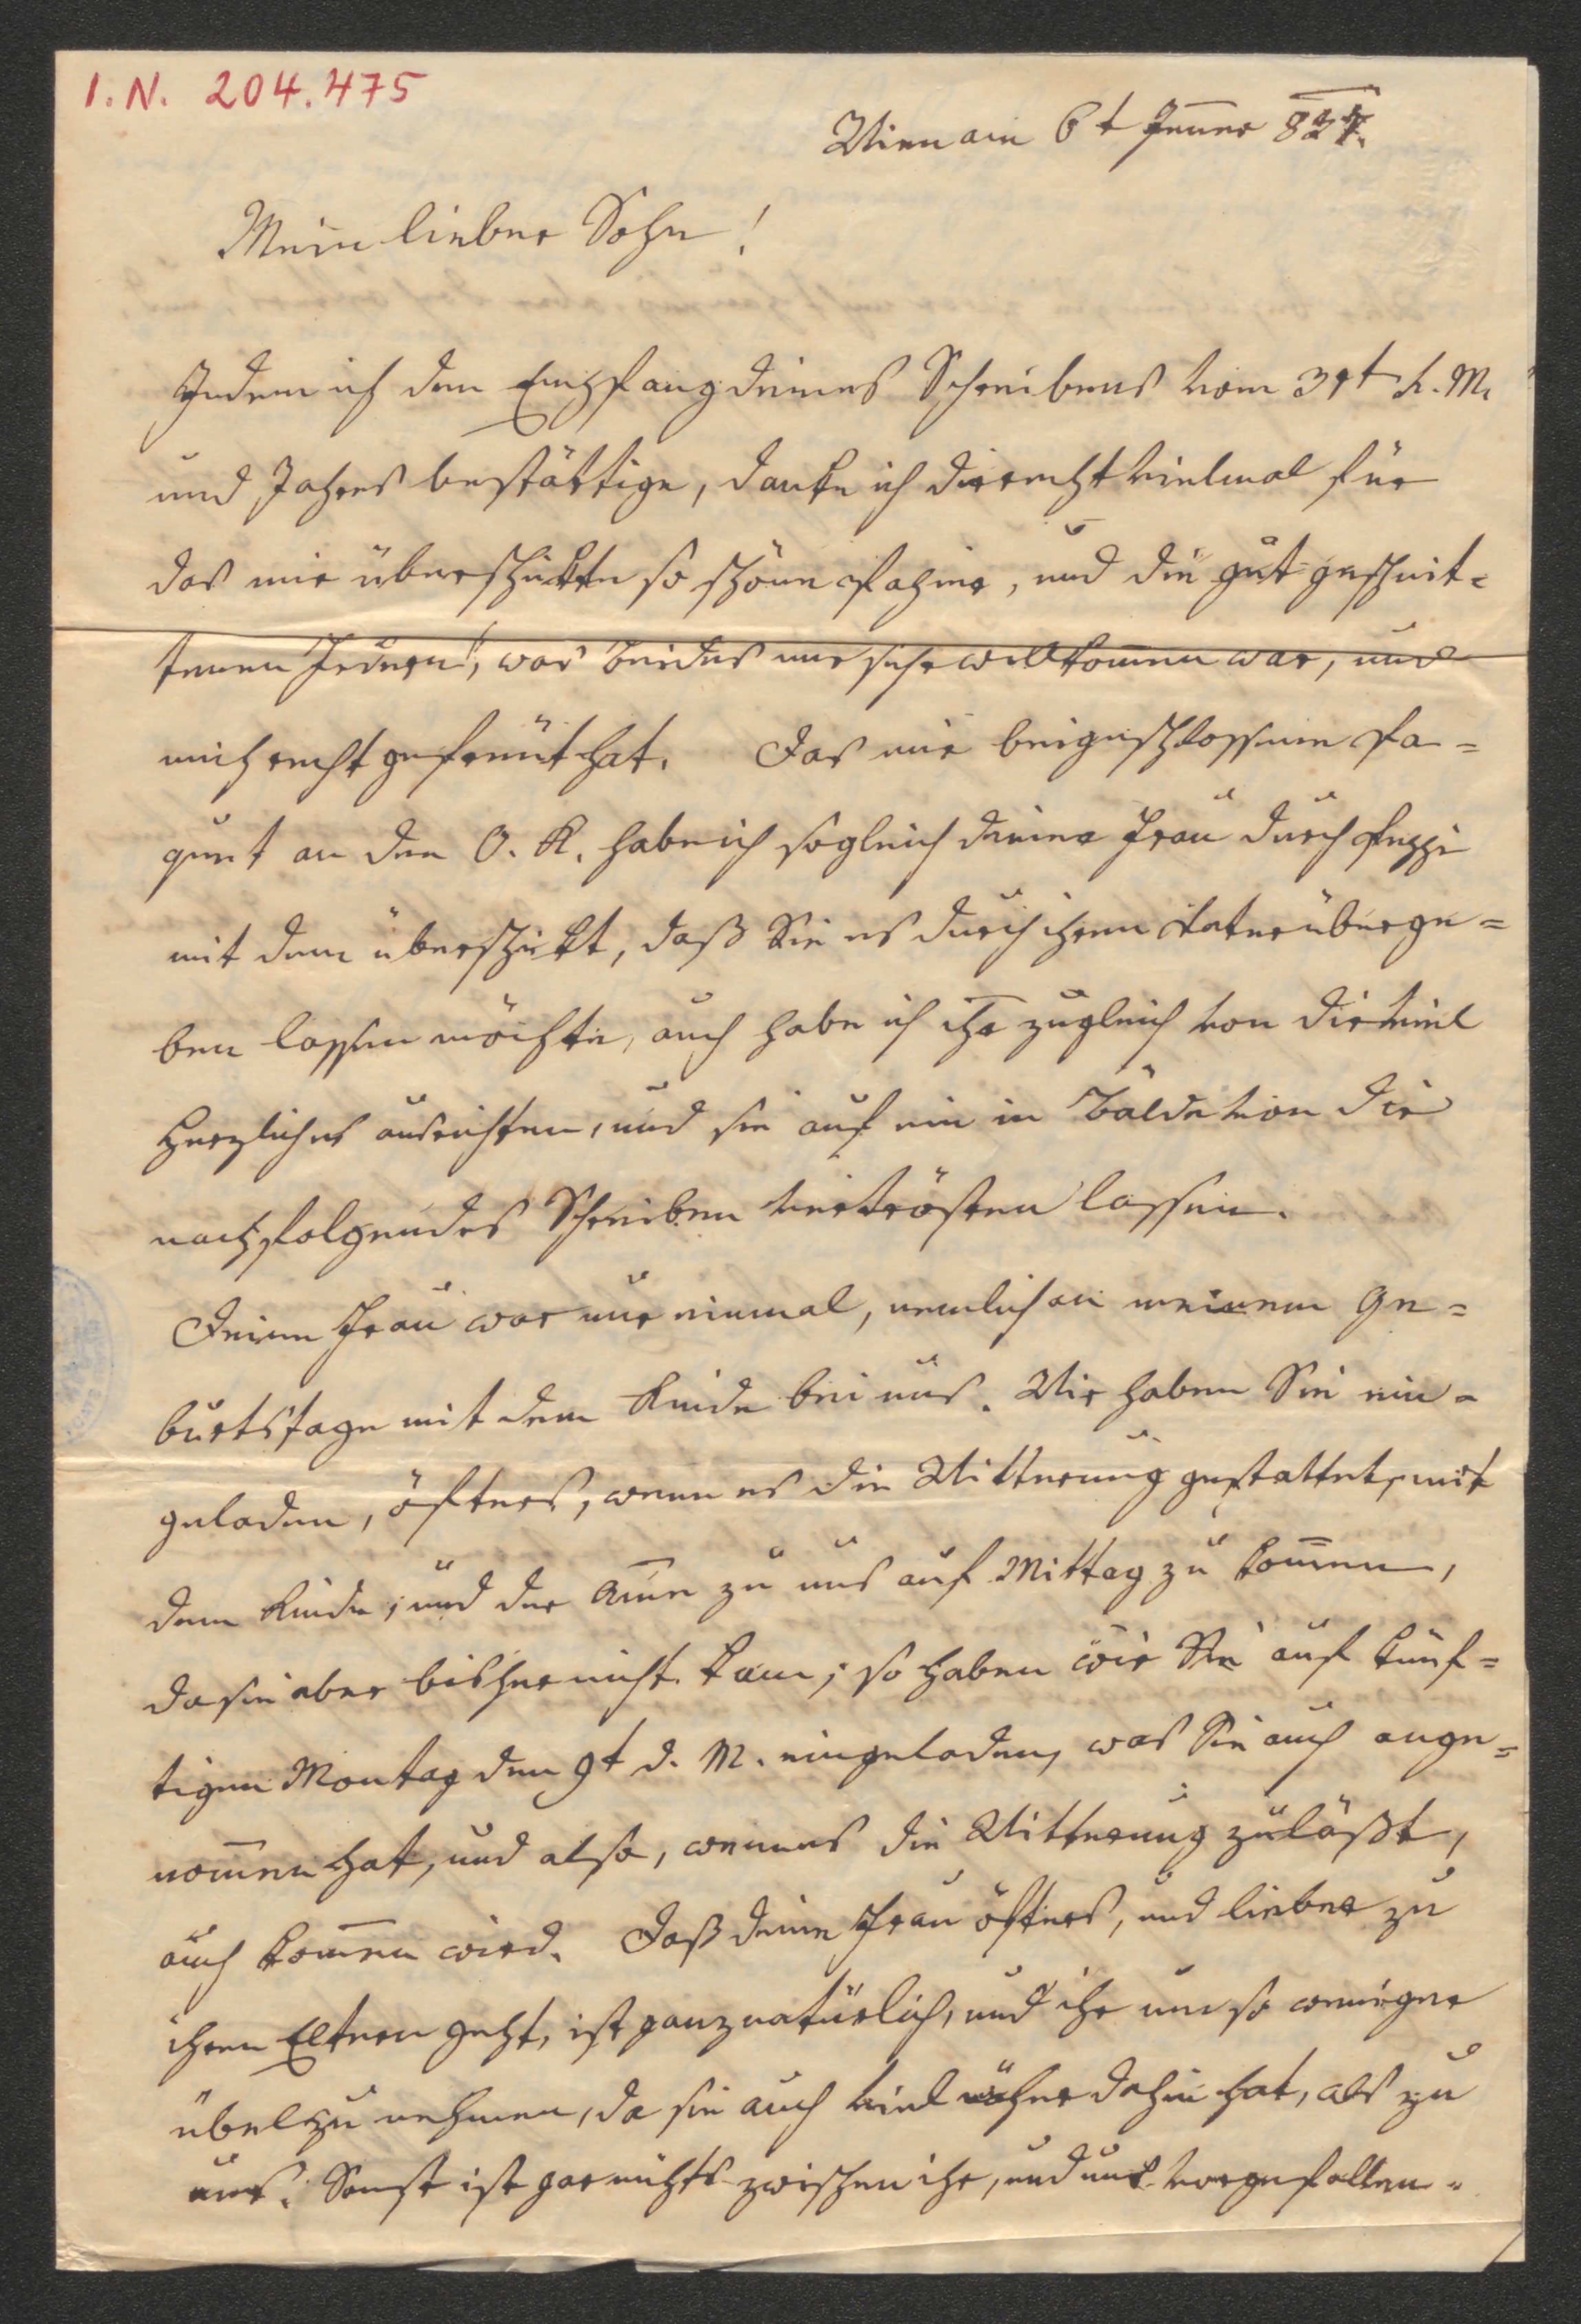 I. N. 204.475
Wien am 6t Jenner 827.
Mein lieber Sohn!
Indem ich den Empfang deines Schreibens vom 31t v. M.
und Jahres bestättige, danke ich dir recht vielmal für
das mir überschickte so schöne Papier, und die gut geschnit=
tenen Federn, was beides mir sehr willkom̄en war, und
mich recht gefreüt hat. Das mir beigeschlossene Pa=
quet an den O. K. habe ich sogleich deiner Frau durch Peppi
mit dem überschickt, daß Sie es durch ihren Vater überge=
ben lassen möchte, auch habe ich ihr zugleich von dir viel
Herzliches ausrichten, und sie auf ein in Bälde von dir
nachfolgendes Schreiben vertrösten lassen.
Deine Frau war nur einmal, nemlich an meinem Ge=
burtstage mit dem Kinde bei uns. Wir haben Sie ein=
geladen, öfters, wenn es die Witterung gestattet, mit
dem Kinde, und der Am̄e zu uns auf Mittag zu kom̄en,
da sie aber bisher nicht kam; so haben wir Sie auf künf=
tigen Montag den 9t d. M. eingeladen, was Sie auch ange=
nom̄en hat, und also, wenn es die Witterung zuläßt,
auch kom̄en wird. Daß deine Frau öfters, und lieber zu
ihren Eltern geht, ist ganz natürlich, und ihr um so weniger
übel zu nehmen, da sie auch viel näher dahin hat, als zu
uns. Sonst ist gar nichts zwischen ihr, und uns vorgefallen.